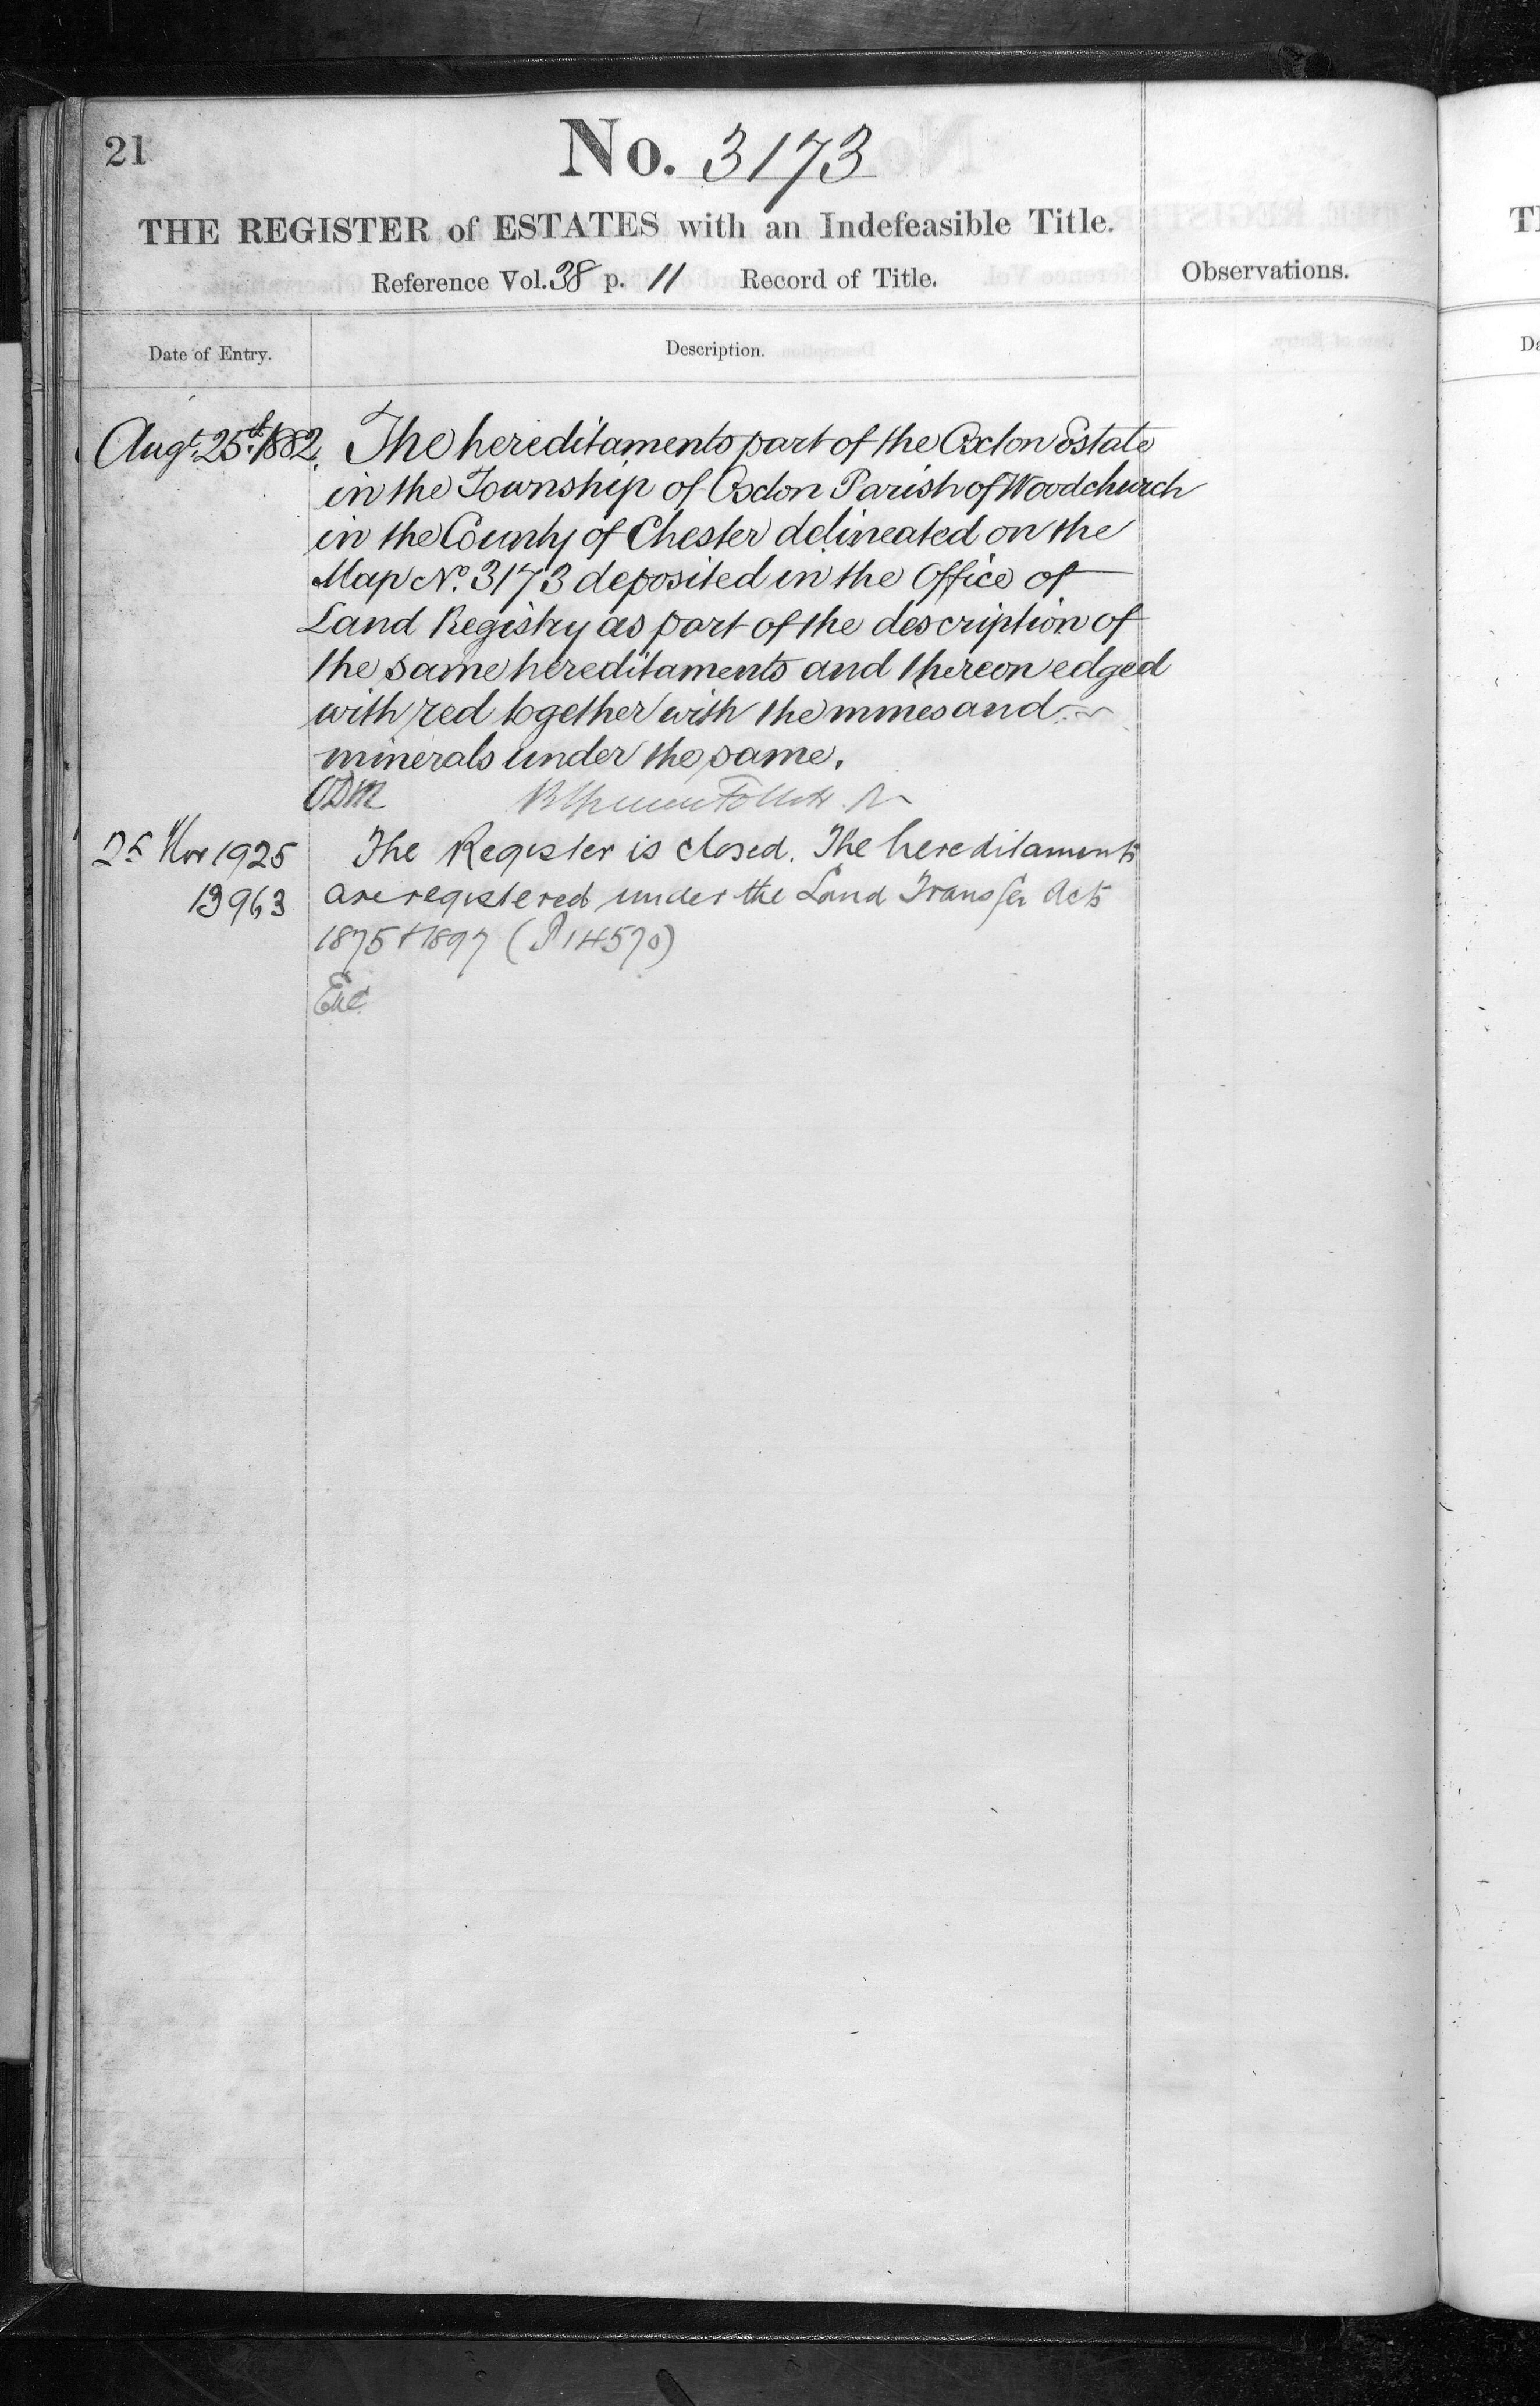 21
No. 3173
THE REGISTER of ESTATES with an Indefeasible Title.
Reference Vol. 38 p. 11 Record of Title.
Observations.
Date of Entry.
Description.
Augt. 25th 1882. The hereditaments part of the Oxton Estate
in the Township of Oxton Parish of Woodchurch
in the County of Chester delineated on the
Map No. 3173 deposited in the Office of
Land Registry as part of the description of
the same hereditaments and thereon edged
with red together with the mines and
minerals under the same.
25 Nov 1925 The Register is closed. The hereditaments
13963 are registered under the Land Transfer Acts
1875 & 1897 (P 14570)